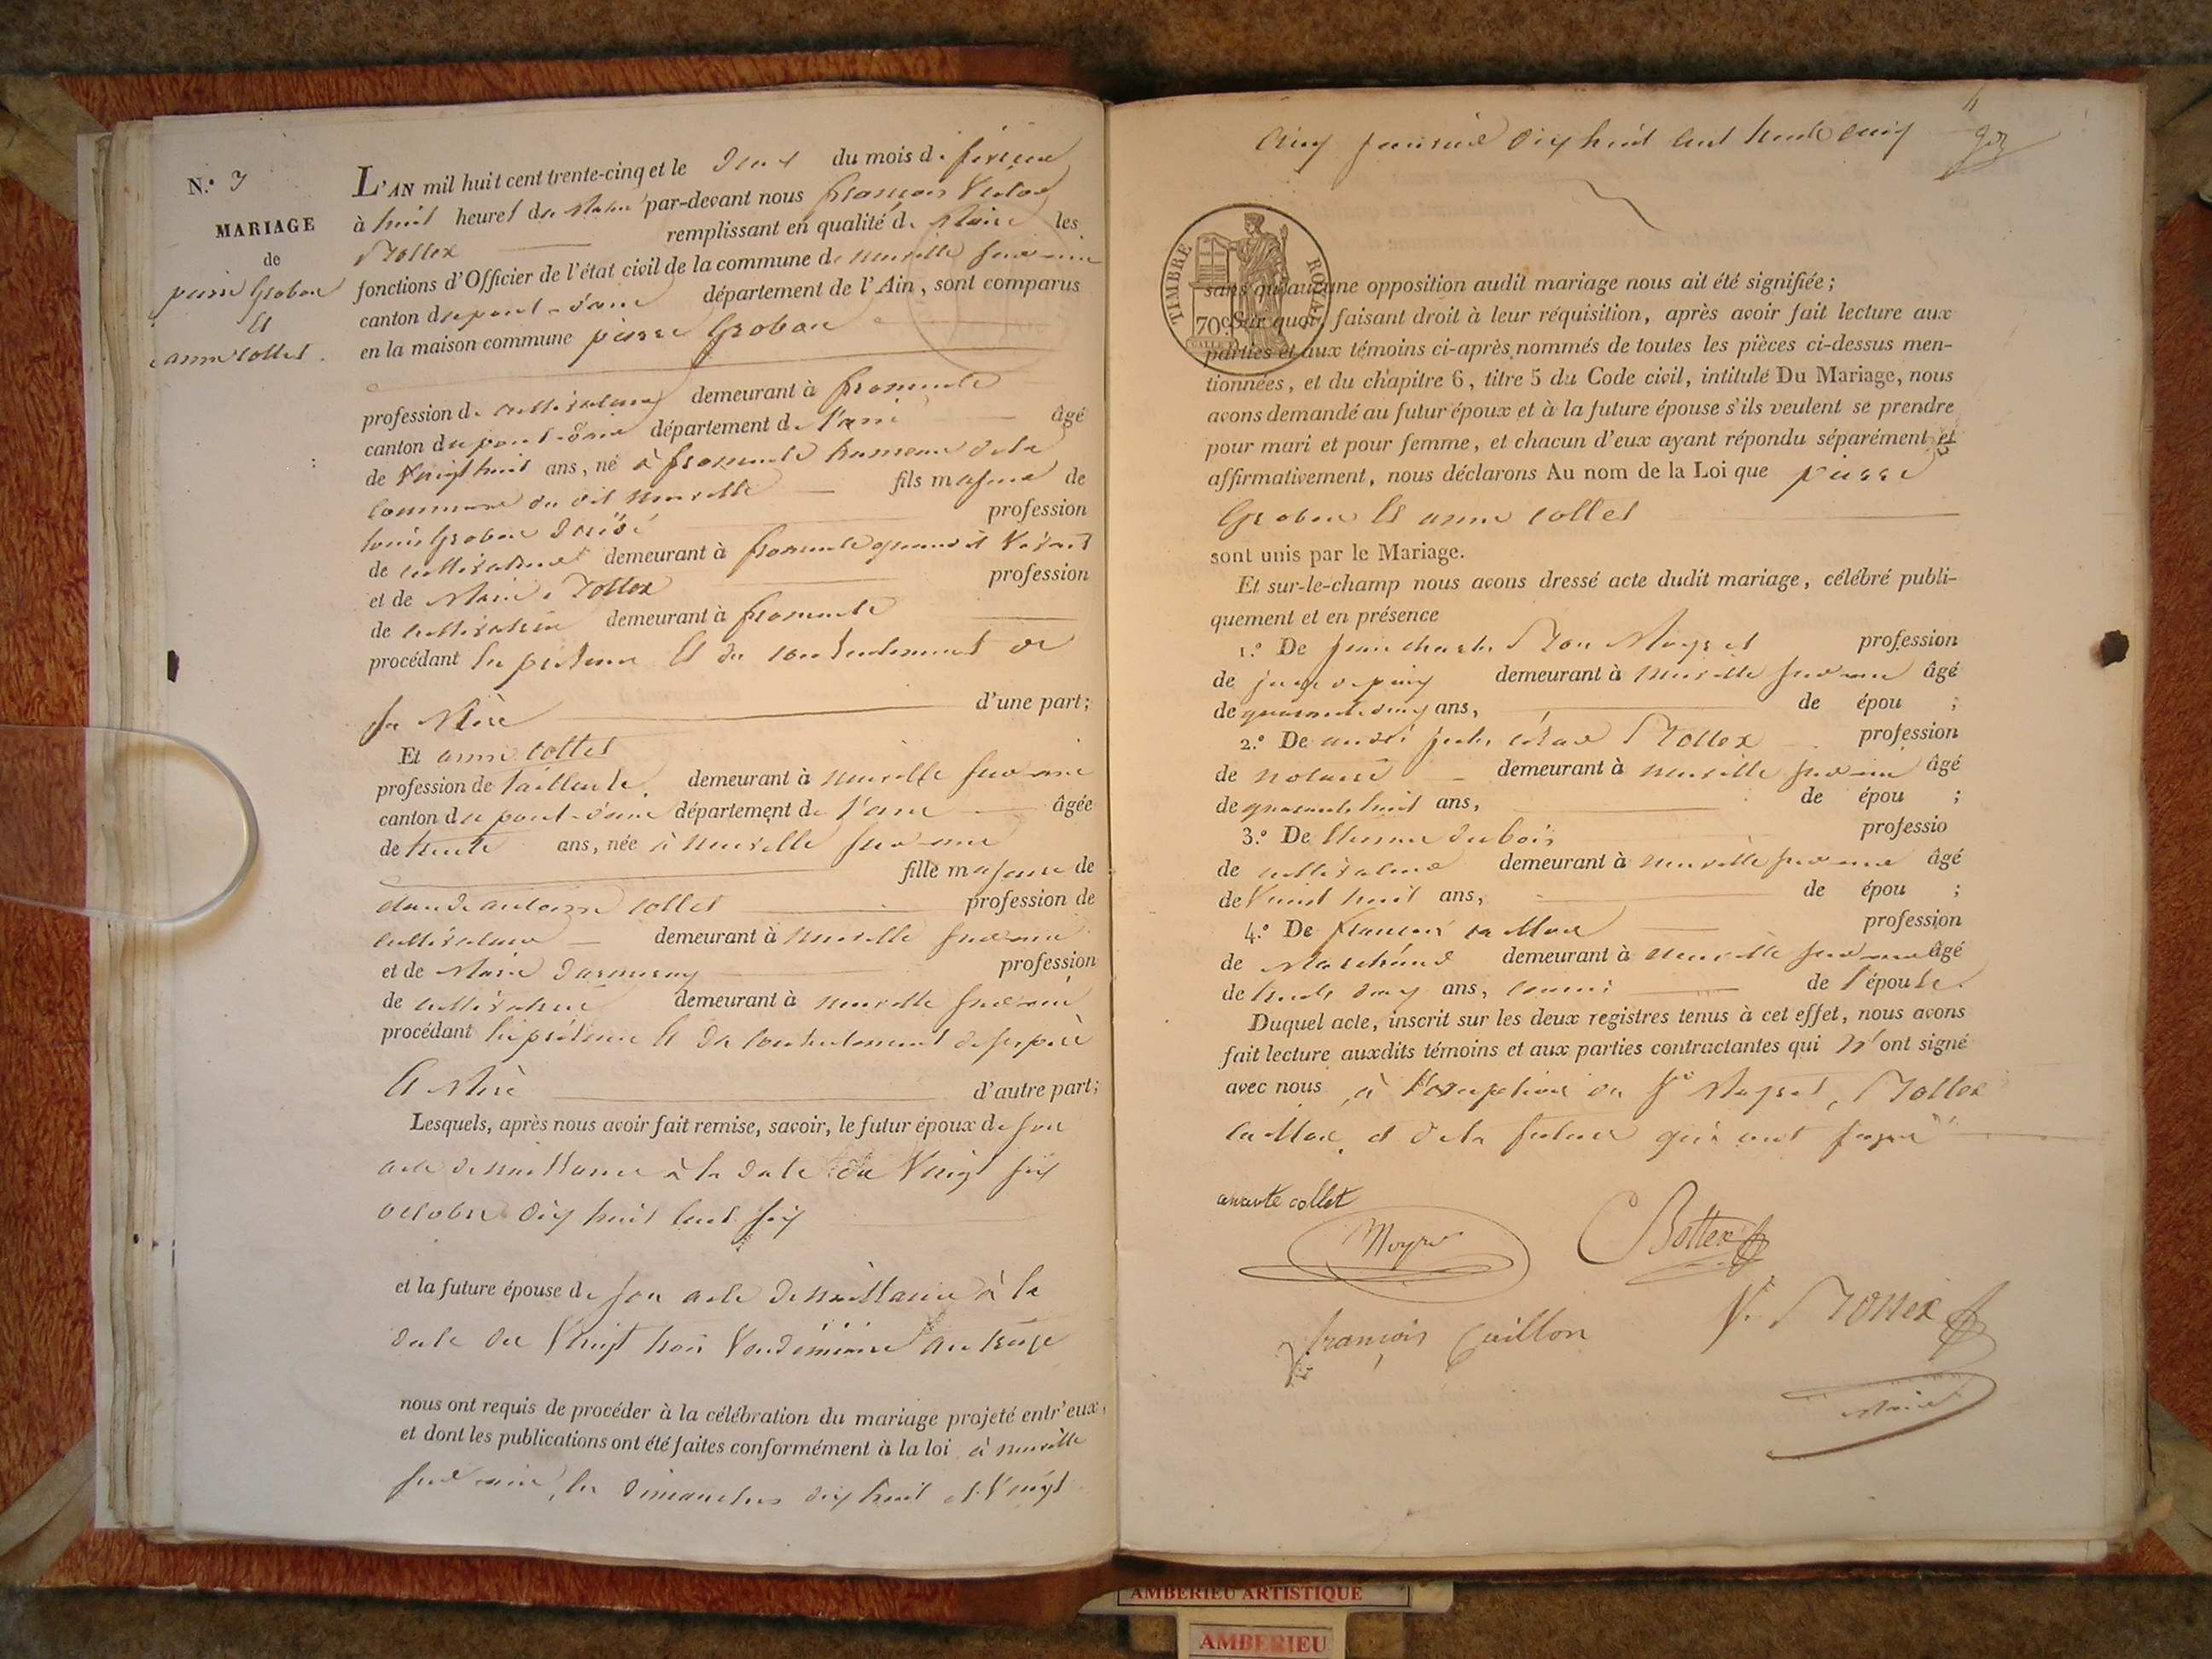 N.° 7
MARIAGE
de
pierre Groboz
Et
anne collet.
L'AN mil huit cent trente-cinq et le deux du mois de février
à huit heures du matin par-devant nous françois Victor
Bottex remplissant en qualité de Maire les
fonctions d'Officier de l'état civil de la commune de neuville sur ain
canton du pont-d'ain département de l'Ain, sont comparus
en la maison commune pierre Groboz
profession de cultivateur demeurant à fromente
canton du pont-d'ain département de l'ain âgé
de Vingt huit ans, né à fromente hameau de la
commune du dit neuville fils majeur de
louis Groboz décédé profession
de cultivateur demeurant à fromente quand il Vivait
et de Marie Bottex profession
de cultivatrice demeurant à fromente
procédant lui présent Et du consentement de
sa Mère d'une part;
Et anne collet
profession de tailleuse demeurant à neuville sur ain
canton du pont-d'ain département de l'ain âgée
de trente ans, née à neuville sur ain
fille majeure de
claude antoine collet profession de
cultivateur demeurant à neuville sur ain
et de Marie profession
de cultivatrice demeurant à neuville sur ain
procédant lui présent Et du consentement de ses père
Et Mère d'autre part;
Lesquels, après nous avoir fait remise, savoir, le futur époux de son
acte de naissance à la date du Vingt six
octobre dix huit cent six
et la future épouse de son acte de naissance à la
date du Vingt trois Vendémiaire an treize
nous ont requis de procéder à la célébration du mariage projeté entr'eux,
et dont les publications ont été faites conformément à la loi à neuville
sur ain, les dimanches dix huit et Vingt
cinq janvier dix huit cent trente cinq
TIMBRE ROYAL
70c
sans qu'aucune opposition audit mariage nous ait été signifiée;
Sur quoi, faisant droit à leur réquisition, après avoir fait lecture aux
parties et aux témoins ci-après nommés de toutes les pièces ci-dessus men-
tionnées, et du chapitre 6, titre 5 du Code civil, intitulé Du Mariage, nous
avons demandé au futur époux et à la future épouse s'ils veulent se prendre
pour mari et pour femme, et chacun d'eux ayant répondu séparément et
affirmativement, nous déclarons Au nom de la Loi que pierre
Groboz Et anne collet
sont unis par le Mariage.
Et sur-le-champ nous avons dressé acte dudit mariage, célébré publi-
quement et en présence
1.° De jean charles Moyret profession
de juge de paix demeurant à neuville sur ain âgé
de quarante cinq ans, de épou ;
2.° De andré jules César Bottex profession
de notaire demeurant à neuville sur ain âgé
de quarante huit ans, de épou ;
3.° De Etienne dubois professio
de cultivateur demeurant à neuville sur ain âgé
de Vingt huit ans, de épou ;
4.° De françois profession
de Marchand demeurant à neuville sur ain âgé
de trente cinq ans, cousin de l'épouse.
Duquel acte, inscrit sur les deux registres tenus à cet effet, nous avons
fait lecture auxdits témoins et aux parties contractantes qui n'ont signé
avec nous à l'exception de Sr Moyret, Bottex
et de la future qui ont signé
collet
Moyret
CBottex
françois Cuillon
V. Bottex
Maire
AMBERIEU ARTISTIQUE
AMBERIEU